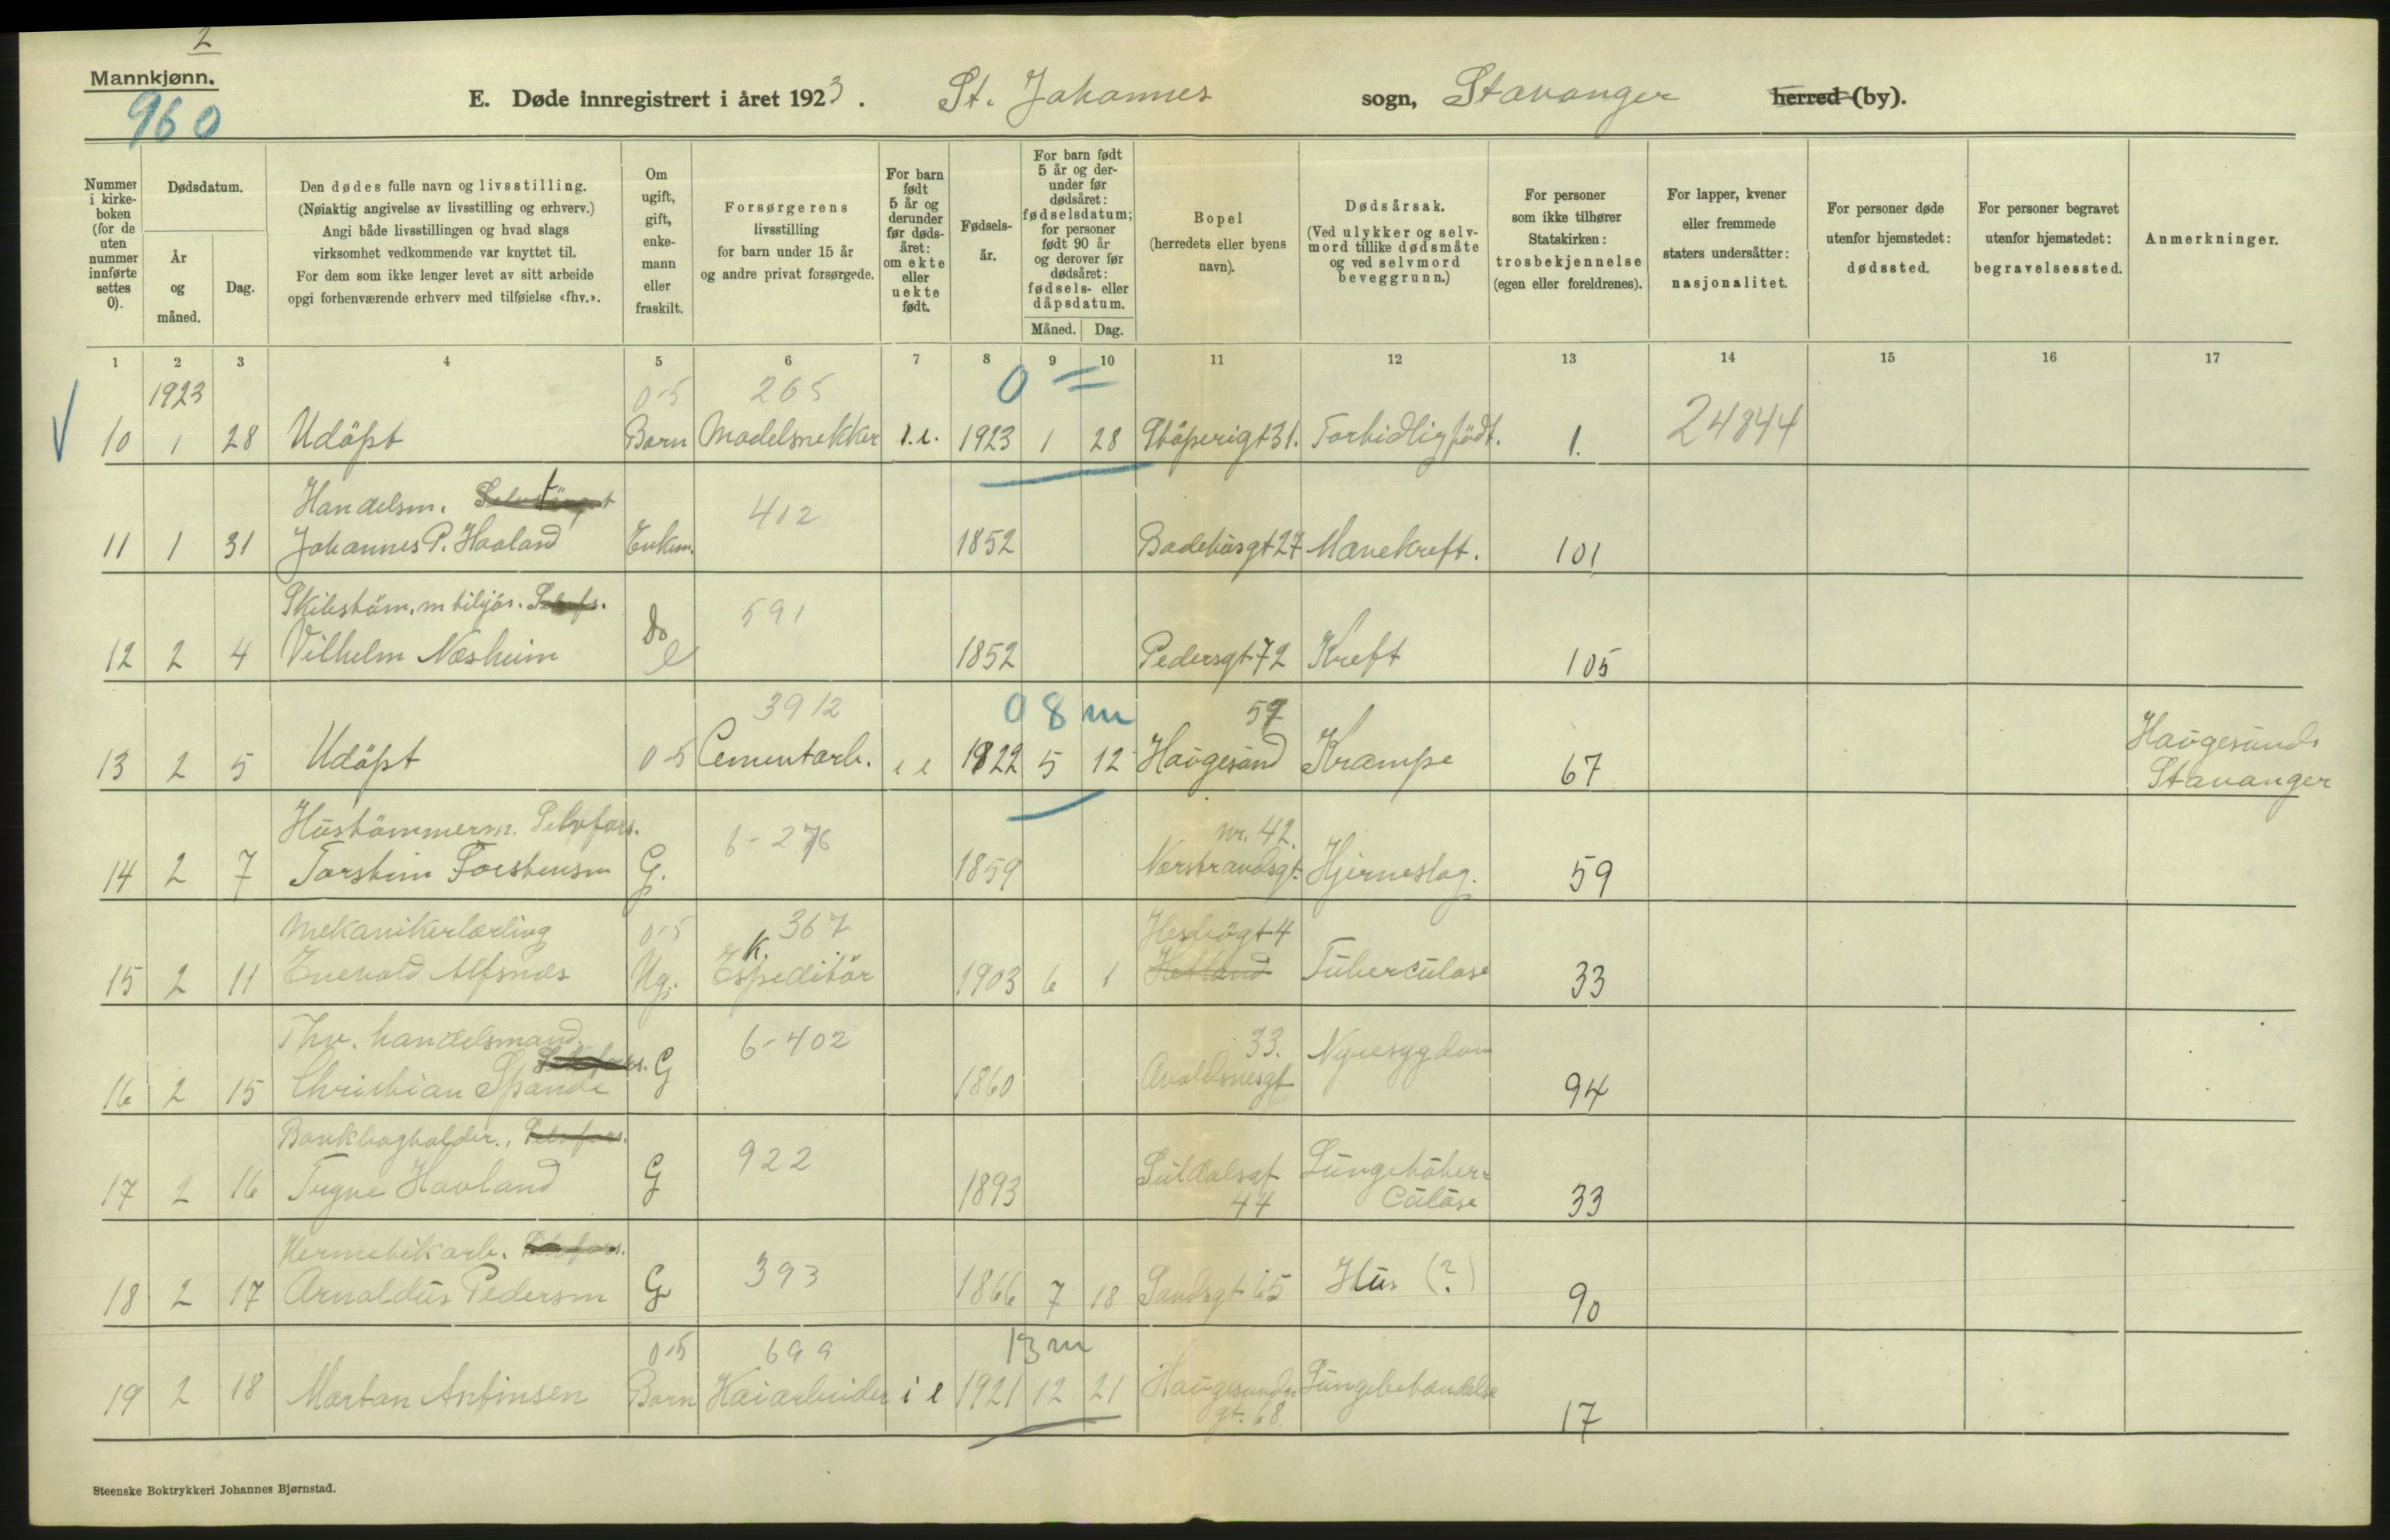 2
Mannkjønn.
960
E. Døde innregistrert i året 1923. St. Johannes sogn, Stavanger herred (by).
Nummer i kirkeboken (for de uten nummer innførte settes 0).
Dødsdatum.
År og måned.
Dag.
Den dødes fulle navn og livsstilling.
(Nøiaktig angivelse av livsstilling og erhverv.)
Angi både livsstillingen og hvad slags
virksomhet vedkommende var knyttet til.
For dem som ikke lenger levet av sitt arbeide
opgi forhenværende erhverv med tilføielse «fhv.».
Om ugift, gift, enkemann eller fraskilt.
Forsørgerens
livsstilling
for barn under 15 år
og andre privat forsørgede.
For barn født 5 år og derunder før dødsåret: om ekte eller uekte født.
Fødselsår.
For barn født 5 år og derunder før dødsåret: fødselsdatum; for personer født 90 år og derover før dødsåret: fødsels- eller dåpsdatum.
Måned. Dag.
Bopel
(herredets eller byens navn).
Dødsårsak.
(Ved ulykker og selvmord tillike dødsmåte og ved selvmord beveggrunn.)
For personer
som ikke tilhører
Statskirken:
trosbekjennelse
(egen eller foreldrenes).
For lapper, kvener
eller fremmede
staters undersåtter:
nasjonalitet.
For personer døde
utenfor hjemstedet:
dødssted.
For personer begravet
utenfor hjemstedet:
begravelsessted.
Anmerkninger.
1 2 3 4 5 6 7 8 9 10 11 12 13 14 15 16 17
1923 0-5 265 0 =
10 1 28 Udöpt Barn Modelsnekker 1923 1 28 Stöperigt 31. Fortidlig födt. 1. 24844
Handelsm.
412
11 1 31 Johannes P. Haaland Enkem. 1852 Badehusgt 27 Mavekreft. 101
Skibstöm. m tiljör.
591
12 2 4 Vilhelm Næsheim do 1852 Pedersgt 72 Kreft 105
3912 0 8 m 57
13 2 5 Udöpt 0-5 Cementarb. 1922 5 12 Haugesund Krampe 67 Haugesunds
Stavanger
Hustömmerm. Selvfors.
6-276 nr. 42.
14 2 7 Torstein Torstensen G. 1859 Nerstrandsgt. Hjerneslag. 59
Mekanikerlærling 0-5 367 Hesbögt 4
15 2 11 Enevald Alfsnes Ug. Ekspeditör 1903 6 1 Hetland Tuberculose 33
Fhv. handelsmand. 6-402 33. Nyresygdom
16 2 15 Christian Spande G 1860 Avaldsnesgt 94
Bankbogholder., Selvfors.
922 Suldalsgt Lungetuber=
17 2 16 Trygve Havland G 1893 44 culose 33
Hermetikarb. Selvfors.
393
18 2 17 Arnoldus Pedersen G 1866 7 18 Sandsgt 65 Hus (?) 90
0-5 699 13 m
19 2 18 Martan Antinsen Barn Kaiarbeider i e 1921 12 21 Haugesunds Lungebetændelse
gt. 68. 17
Steenske Boktrykkeri Johannes Bjørnstad.